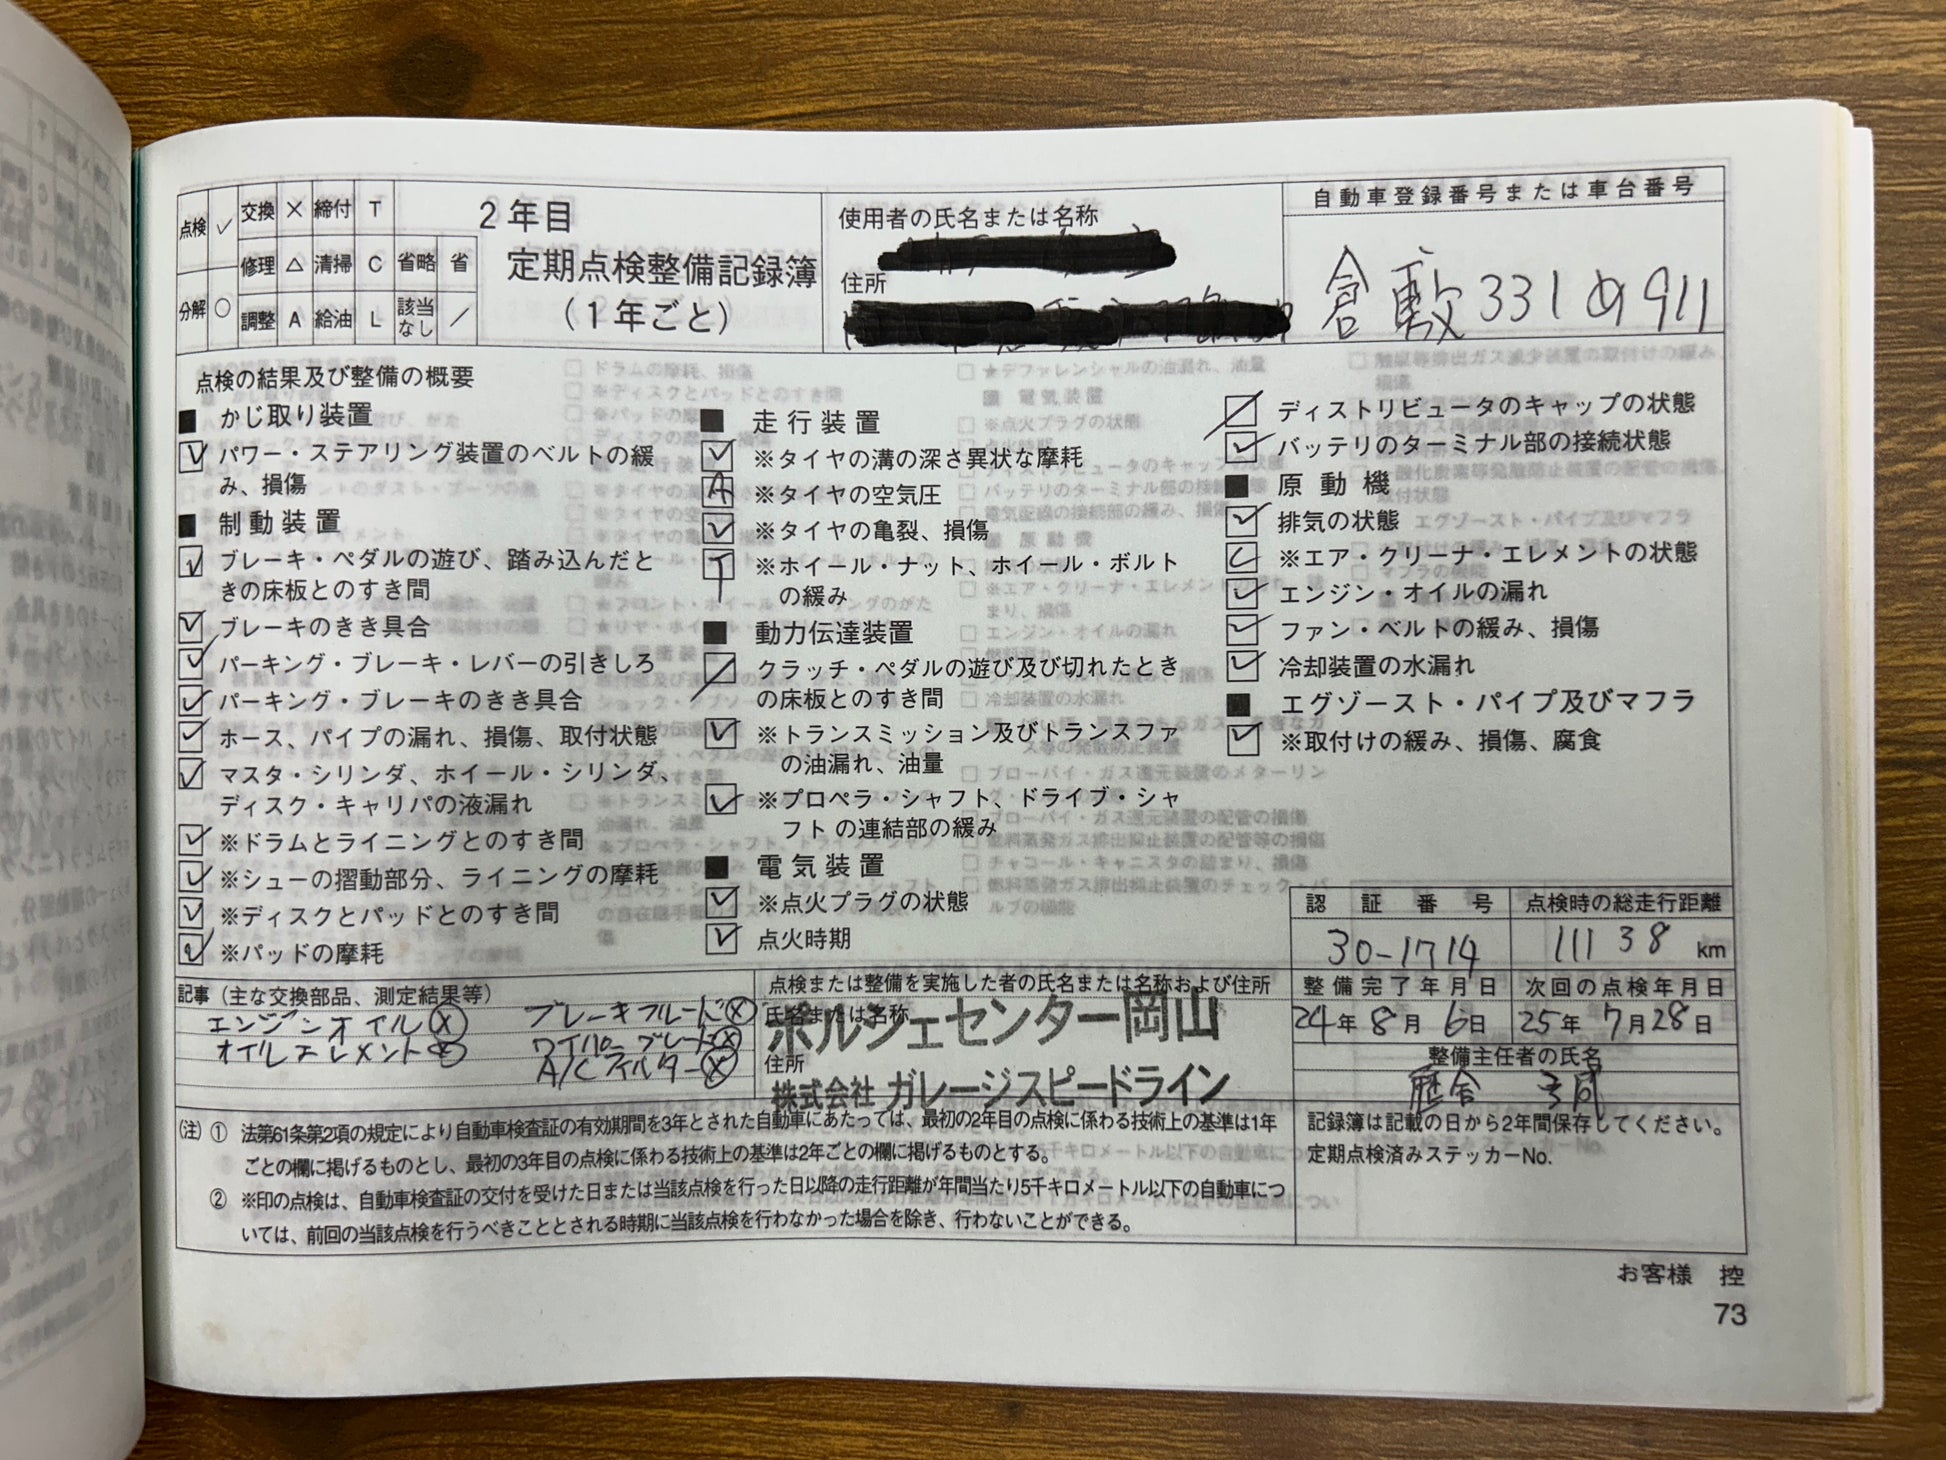 点検 ✓ 交換 × 締付 T
修理 △ 清掃 C 省略 省
分解 ○ 調整 A 給油 L 該当なし ／
2年目
定期点検整備記録簿
(1年ごと)
使用者の氏名または名称
住所
自動車登録番号または車台番号
倉敷331め911
点検の結果及び整備の概要
■ かじ取り装置
パワー・ステアリング装置のベルトの緩
み、損傷
■ 制動装置
ブレーキ・ペダルの遊び、踏み込んだと
きの床板とのすき間
ブレーキのきき具合
パーキング・ブレーキ・レバーの引きしろ
パーキング・ブレーキのきき具合
ホース、パイプの漏れ、損傷、取付状態
マスタ・シリンダ、ホイール・シリンダ、
ディスク・キャリパの液漏れ
※ドラムとライニングとのすき間
※シューの摺動部分、ライニングの摩耗
※ディスクとパッドとのすき間
※パッドの摩耗
■ 走行装置
※タイヤの溝の深さ異状な摩耗
A ※タイヤの空気圧
※タイヤの亀裂、損傷
T ※ホイール・ナット、ホイール・ボルト
の緩み
■ 動力伝達装置
クラッチ・ペダルの遊び及び切れたとき
の床板とのすき間
※トランスミッション及びトランスファ
の油漏れ、油量
※プロペラ・シャフト、ドライブ・シャ
フトの連結部の緩み
■ 電気装置
※点火プラグの状態
点火時期
ディストリビュータのキャップの状態
バッテリのターミナル部の接続状態
■ 原動機
排気の状態
C ※エア・クリーナ・エレメントの状態
エンジン・オイルの漏れ
ファン・ベルトの緩み、損傷
冷却装置の水漏れ
■ エグゾースト・パイプ及びマフラ
※取付けの緩み、損傷、腐食
認証番号
30-1714
点検時の総走行距離
11138 km
整備完了年月日
24年8月6日
次回の点検年月日
25年7月28日
整備主任者の氏名
記事（主な交換部品、測定結果等）
エンジンオイル ⓧ ブレーキフルード ⓧ
オイルエレメント ⓧ ワイパーブレード ⓧ
A/Cフィルター ⓧ
点検または整備を実施した者の氏名または名称および住所
氏名または名称
ポルシェセンター岡山
住所
株式会社 ガレージスピードライン
(注) ① 法第61条第2項の規定により自動車検査証の有効期間を3年とされた自動車にあたっては、最初の2年目の点検に係わる技術上の基準は1年
ごとの欄に掲げるものとし、最初の3年目の点検に係わる技術上の基準は2年ごとの欄に掲げるものとする。
② ※印の点検は、自動車検査証の交付を受けた日または当該点検を行った日以降の走行距離が年間当たり5千キロメートル以下の自動車につ
いては、前回の当該点検を行うべきこととされる時期に当該点検を行わなかった場合を除き、行わないことができる。
記録簿は記載の日から2年間保存してください。
定期点検済みステッカーNo.
お客様 控
73